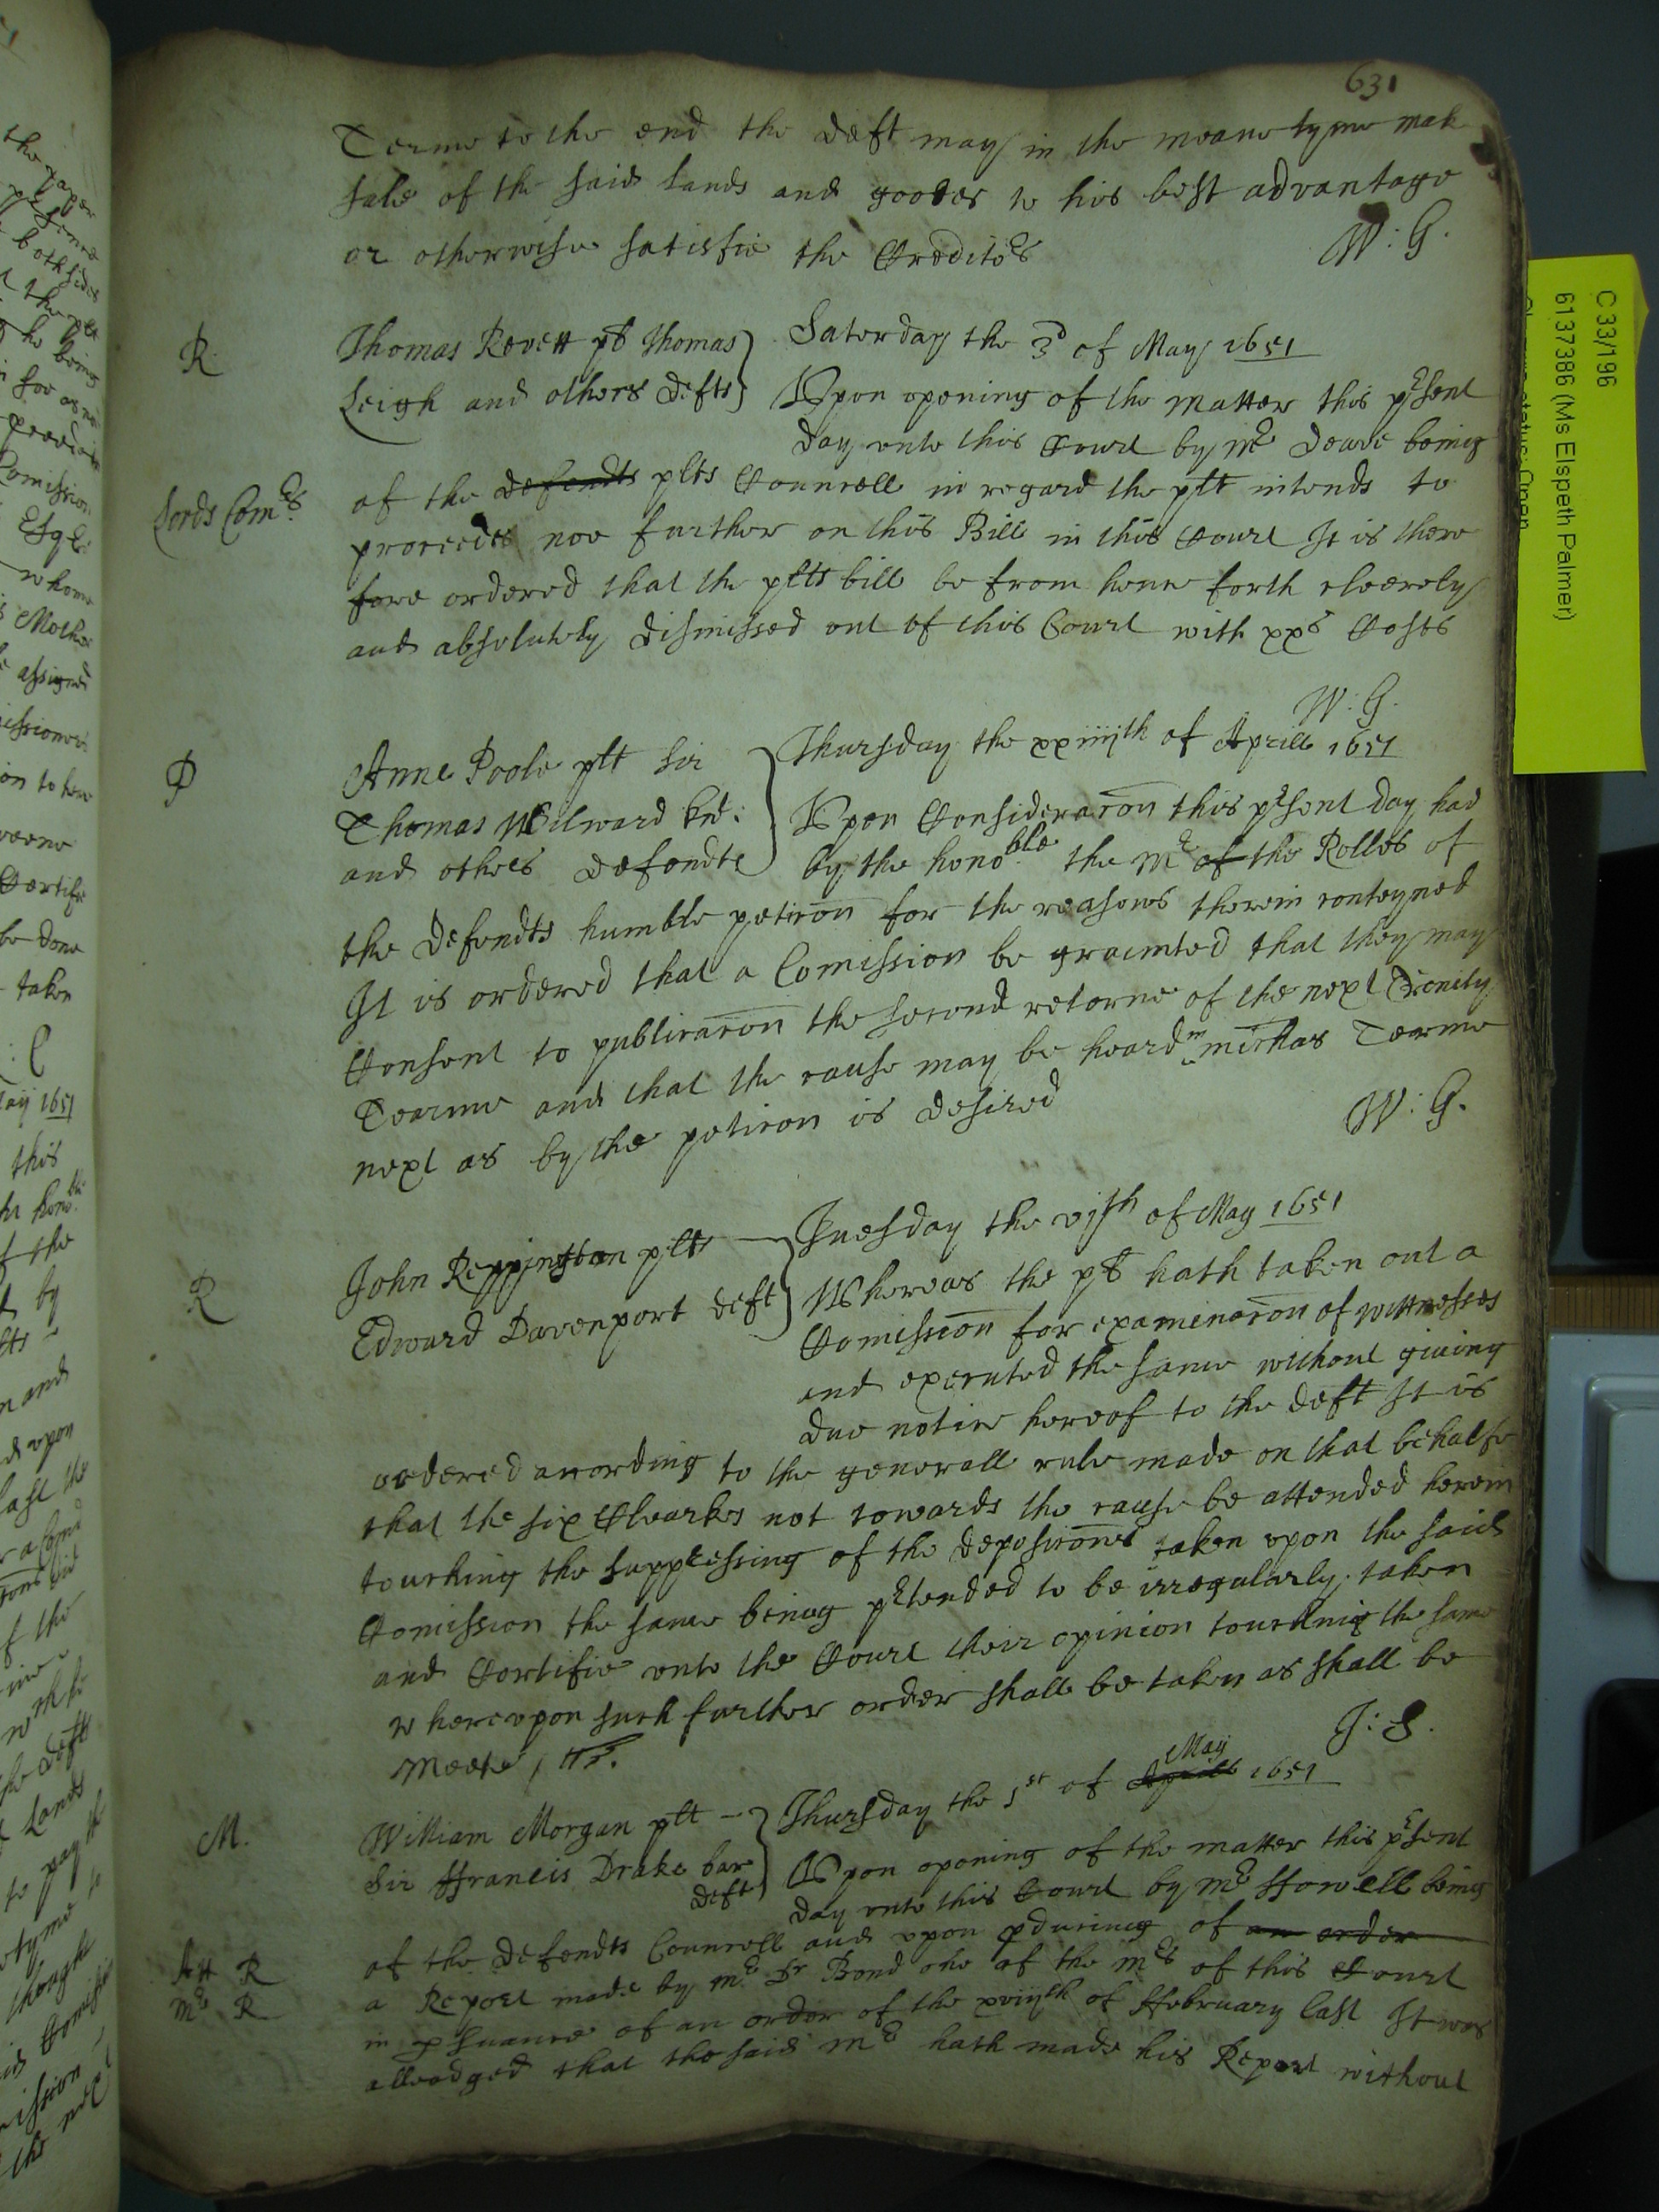 631
Terme to the end the deft may in the meane tyme mak
sale of the said lands and goodes to his best advantage
or otherwise satisfie the Creditors
W: G.
R
Thomas Revett plt Thomas
Leigh and others defts
Saterday the 3d of May 1651
Upon opening of the matter this present
day unto this Court by Mr being
Lords Comrs
of the defendts plts Councell in regard the plt intends to
proceede noe further on this Bill in this Court It is there
fore ordered that the plts bill be from hence forth cleerely
and absolutely dismissed out of this Court with xxs Costs
W: G.
P
Anne Poole plt Sir
Thomas Milward knt:
and others defendts
Thursday the xxiiijth of Aprill 1651
Upon Consideracon this present day had
by the honoble the Mr of the Rolles of
the defendts humble peticon for the reasons therein conteyned
It is ordered that a Comission be graunted that they may
Consent to publicacon the second retorne of the next Trenity
Tearme and that the cause may be heard in michas Tearme
next as by the peticon is desired
W: G.
R
John Reppington plt
Edward Davenport deft
Tuesday the vjth of May 1651
Whereas the plt hath taken out a
Comission for examinacon of wittnesses
and executed the same without giving
due notice hereof to the deft It is
ordered according to the generall rule made on that behalfe
that the six Clearkes not towards the cause be attended herein
touching the suppressing of the deposicons taken upon the said
Comission the same being pretended to be irregularly taken
and Certifie unto the Court their opinion touching the same
whereupon such further order shall be taken as shall be
meete /
J: S.
M.
William Morgan plt
Sir Ffrancis Drake bar
deft
Thursday the 1st of Aprill May 1651
Upon opening of the matter this present
day unto this Court by Mr Howell being
of the defendts Councell and upon produceing of an order
Att R
Mr R
a Report made by Mr Dr Bond one of the Mrs of this Court
in psuance of an order of the xviijth of Ffebruary last It was
alleadged that the said Mr hath made his Report without
C 33/196
6137386 (Ms Elspeth Palmer)